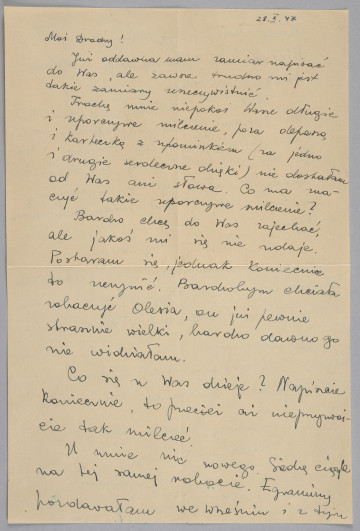 28.X.47
Moi Drodzy!
Już oddawna mam zamiar napisać
do Was, ale zawsze trudno mi jest
takie zamiary urzeczywistnić.
Trochę mnie niepokoi Wasze długie
i uporczywe milczenie, poza depeszą
i karteczką z upominkiem (za jedno
i drugie serdeczne dzięki) nie dostałam
od Was ani słowa. Co ma zna-
czyć takie uporczywe milczenie?
Bardzo chcę do Was zajechać,
ale jakoś mi się nie udaje.
Postaram się, jednak koniecznie
to uczynić. Bardzobym chciała
zobaczyć Olesia, on już pewnie
strasznie wielki, bardzo dawno go
nie widziałam.
Co się u Was dzieje? Napiszcie
koniecznie, to przecież ani nieprzyzwoi-
cie tak milczeć.
U mnie nic nowego. Siedzę ciągle
na tej samej robocie. Egzaminy
pozdawałam we wrześniu i z tym